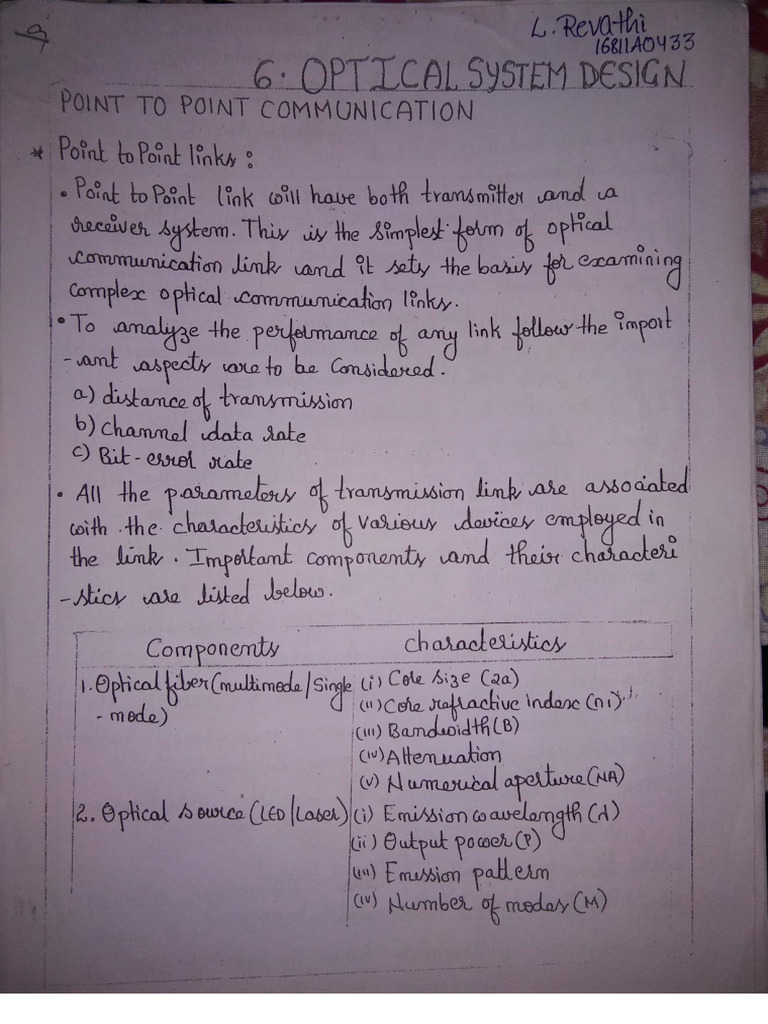 L. Revathi
16811A0433
6. OPTICAL SYSTEM DESIGN
POINT TO POINT COMMUNICATION
* Point to Point links :
• Point to Point link will have both transmitter and a
receiver system. This is the simplest form of optical
communication link and it sets the basis for examining
complex optical communication links.
• To analyze the performance of any link follow the import
-ant aspects are to be Considered.
a) distance of transmission
b) Channel data rate
c) Bit-error rate
• All the parameters of transmission link are associated
with the characteristics of various devices employed in
the link. Important components and their characteri
-stics are listed below.
Components characteristics
1. Optical fiber (multimode/Single (i) Core size (2a)
-mode) (ii) Core refractive index (n1).
(iii) Bandwidth (B)
(iv) Attenuation
(v) Numerical aperture (NA)
2. Optical source (LED/Laser) (i) Emission wavelength (λ)
(ii) Output power (P)
(iii) Emission pattern
(iv) Number of modes (M)